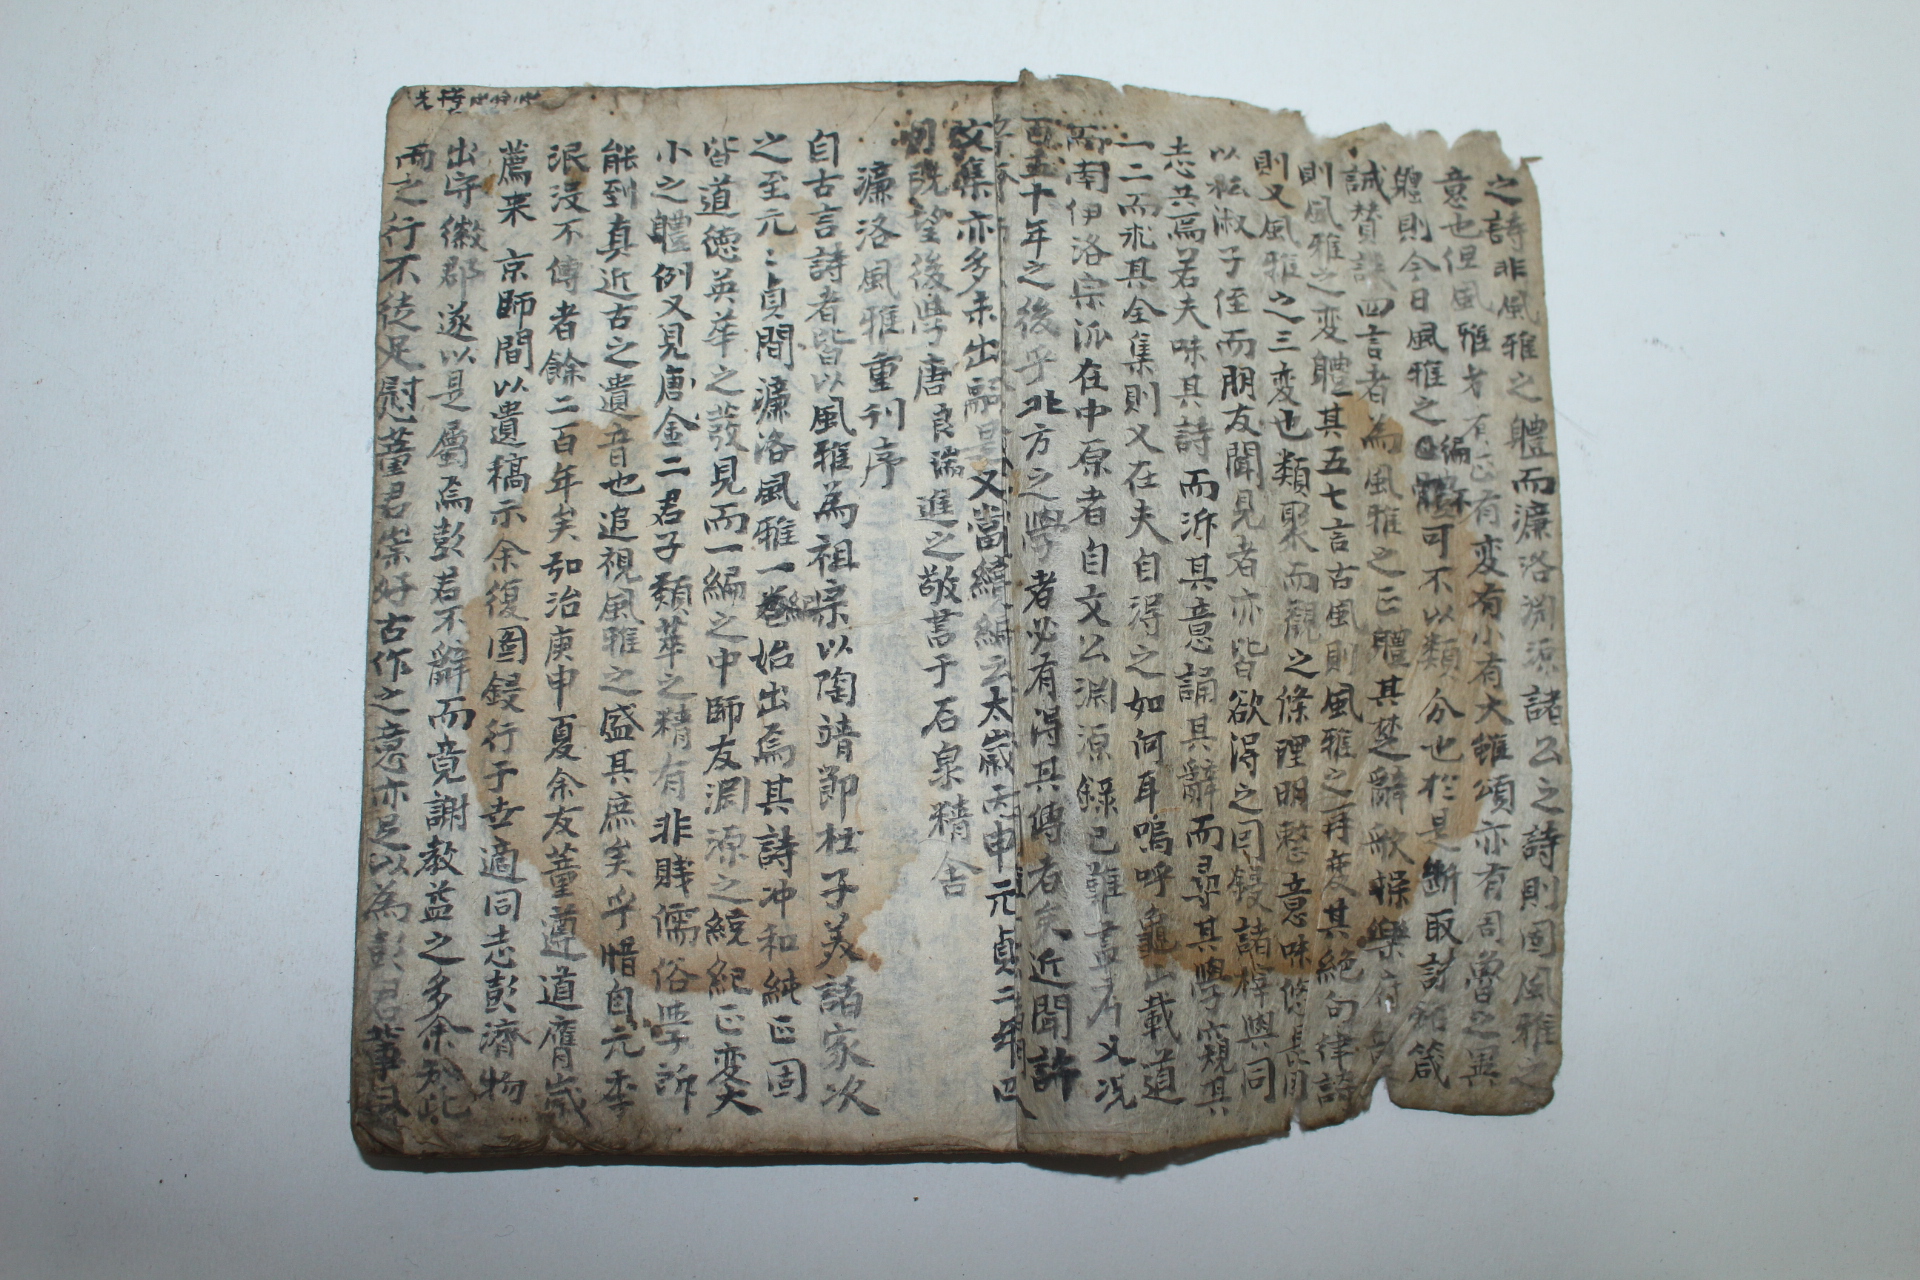 之詩非風雅之體而濂洛淵源諸公之詩則固風雅之
意也但風雅有正有変有小有大雖頌亦有周魯之異
體則今日風雅之編不可不以類分也於是斷取詩銘箴
誡賛誄四言者為風雅之正體其楚辭歌操樂府音
則風雅之変體其五七言古風則風雅之再変其絶句律詩
則又風雅之三変也類聚而觀之條理明整意味悠長同
以松淑子侄而朋友聞見者亦皆欲得之囙鋟諸梓與同
志共焉若夫味其詩而泝其意誦其辭而尋其學窺其
一二而求其全集則又在夫自得之如何耳嗚呼龜山載道
而南伊洛宗派在中原者自文公淵源錄已難盡考又况
百五十年之後乎北方之學者必有得其傳者矣近聞許
文集亦多未出嗣是又當續編云太歲丙申元貞二年四
月既望後學唐良瑞進之敬書于石泉精舍
濂洛風雅重刊序
自古言詩者皆以風雅為祖宗以陶靖節杜子美諸家次
之至元ゝ貞間濂洛風雅一卷始出焉其詩冲和純正固
皆道德英華之發見而一編之中師友淵源之統紀正変大
小之體例又見唐金二君子類萃之精有非賎儒俗學所
能到真近古之遺音也追視風雅之盛其庶矣乎惜自元季
泯没不傳者餘二百年矣弘治庚申夏余友董遵道膺歲
薦来京師間以遺稿示余復圖鋟行于世適同志彭濟物
出守徽郡遂以是屬焉彭君不辭而竟謝教益之多余於此
而之行不徒足慰董君崇好古作之意亦足以為彭君